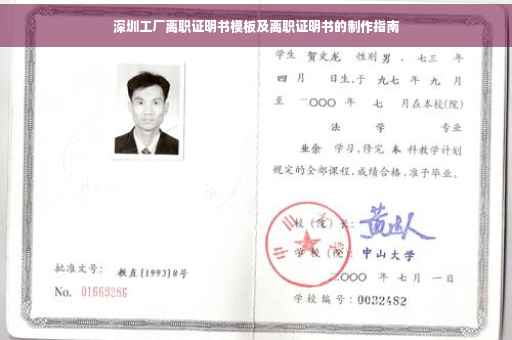 深圳工厂离职证明书模板及离职证明书的制作指南
学生 贺文龙 性别 男、七三 年
四 月 日生,于 九七 年 九 月
至 二〇〇〇 年 七 月在本校(院)
法 学 专业
业余 学习,修完 本 科教学计划
规定的全部课程,成绩合格,准予毕业。
校(院)长:
学校(院): 中山大学
批准文号: 教直[1993]8号
二〇〇〇 年 七 月 一 日
No. 01663286
学校编号: 0032482